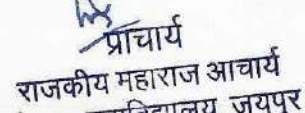 प्राचार्य
राजकीय महाराज आचार्य
जयपुर